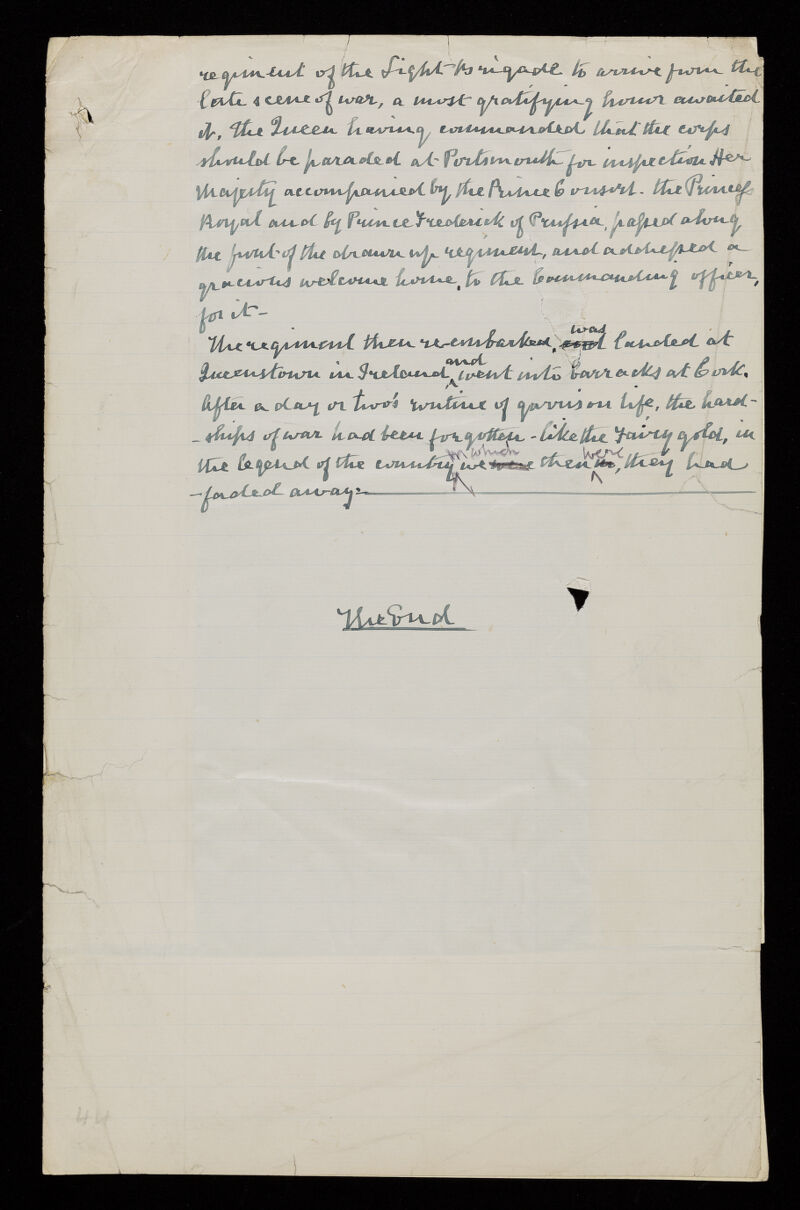 regiment of the Light Brigade to arrive from the
late scene of war, a most gratifying honor awaited
it. The Queen having commanded that the corps
should be paraded at Portsmouth for inspection Her
Majesty accompanied by the Prince Consort - the Princess
Royal and by Prince Frederick of Prussia, passed along
the front of the drawn up regiment, and addressed a
gracious welcome home, to the Commanding officer,
for it -
The regiment then re-embarked, and was landed at
Queenstown in Ireland, and went into barracks at Cork.
After a day or two's routine of garrison life, the hard-
-ships of war had been forgotten - like the Fairy gold, in
the legend of the country in which we were then in were, they had
- faded away. -
The End
44